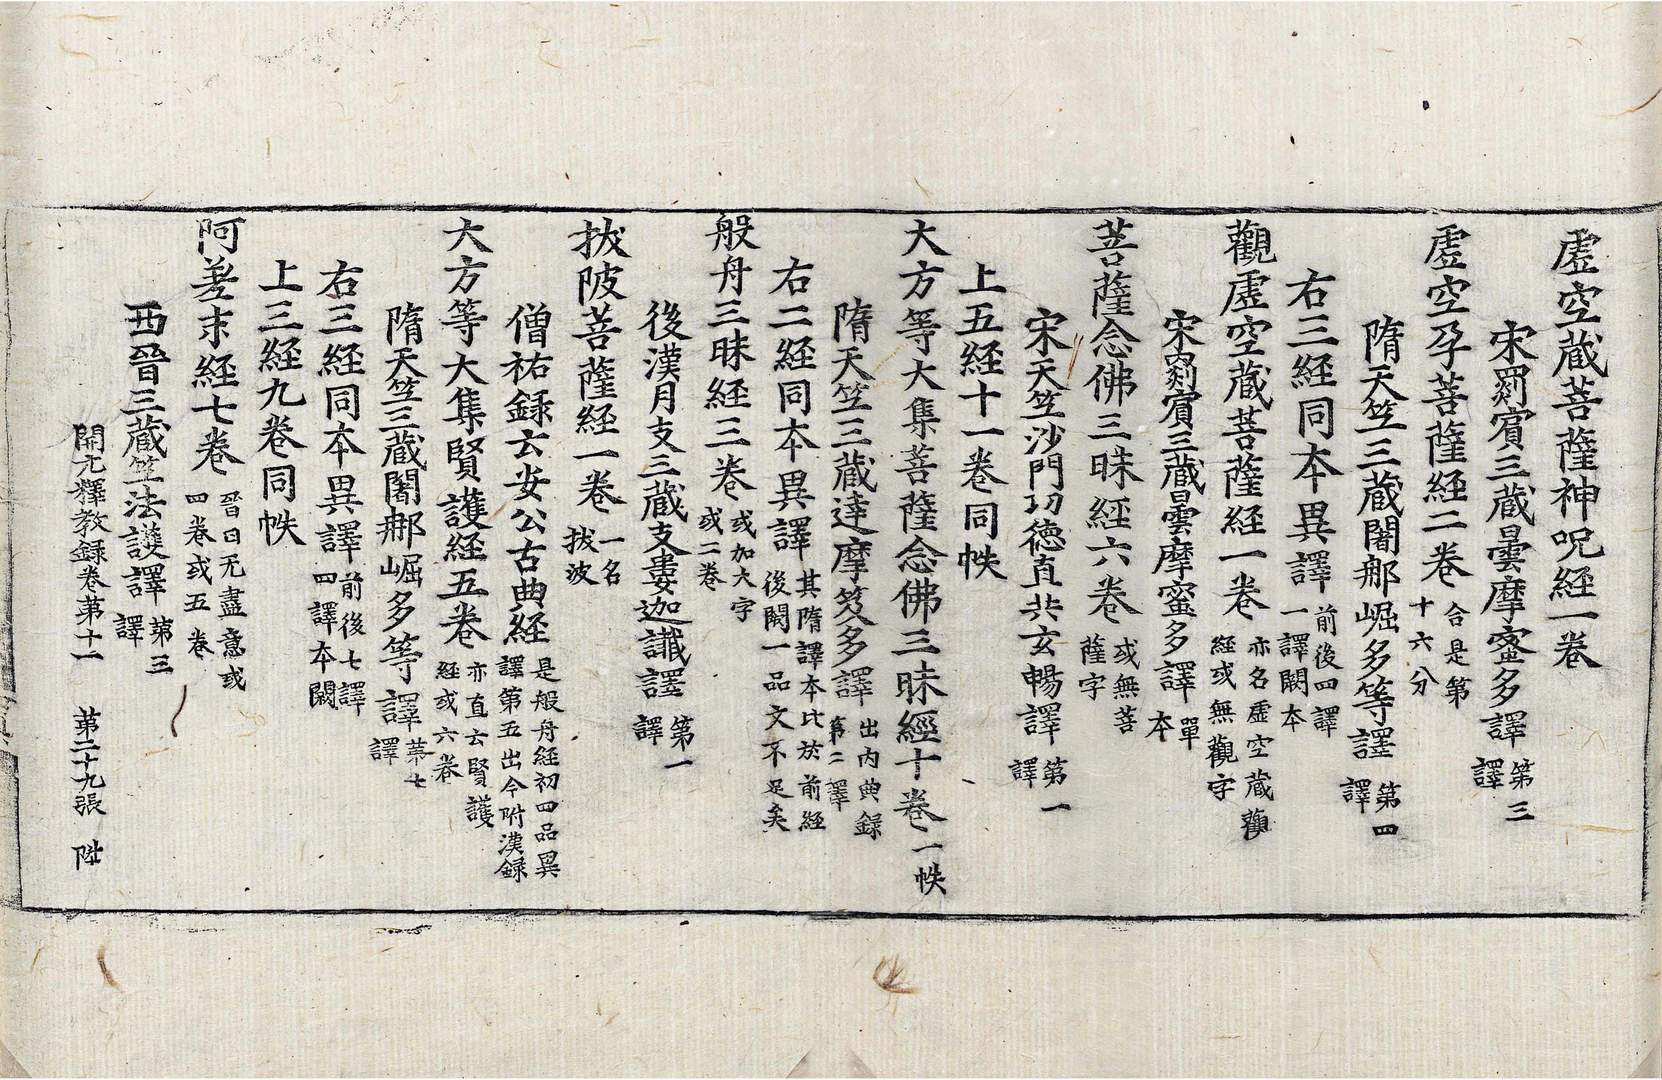 虛空蔵菩薩神呪経一巻
宋罽賓三蔵曇摩蜜多譯第三譯
虛空孕菩薩経二巻合是第十六分
隋天竺三蔵闍那崛多等譯第四譯
右三経同本異譯前後四譯一譯闕本
觀虛空蔵菩薩経一巻亦名虛空蔵觀経或無觀字
宋罽賓三蔵曇摩蜜多譯單本
菩薩念佛三昧経六巻或無菩薩字
宋天竺沙門功徳直共玄暢譯第一譯
上五経十一巻同帙
大方等大集菩薩念佛三昧經十巻一帙
隋天竺三蔵達摩笈多譯出內典録第二譯
右二経同本異譯其隋譯本比於前経後闕一品文不足矣
般舟三昧経三巻或加大字或二巻
後漢月支三蔵支婁迦讖譯第一譯
拔陂菩薩経一巻一名拔波
僧祐録云安公古典経是般舟経初四品異譯第五出今附漢録
大方等大集賢護経五巻亦直云賢護経或六巻
隋天竺三蔵闍那崛多等譯第七譯
右三経同本異譯前後七譯四譯本闕
上三経九巻同帙
阿差末経七巻晉曰无盡意或四巻或五巻
西晉三蔵竺法護譯第三譯
開元釋教録巻第十一 第二十九張 陞